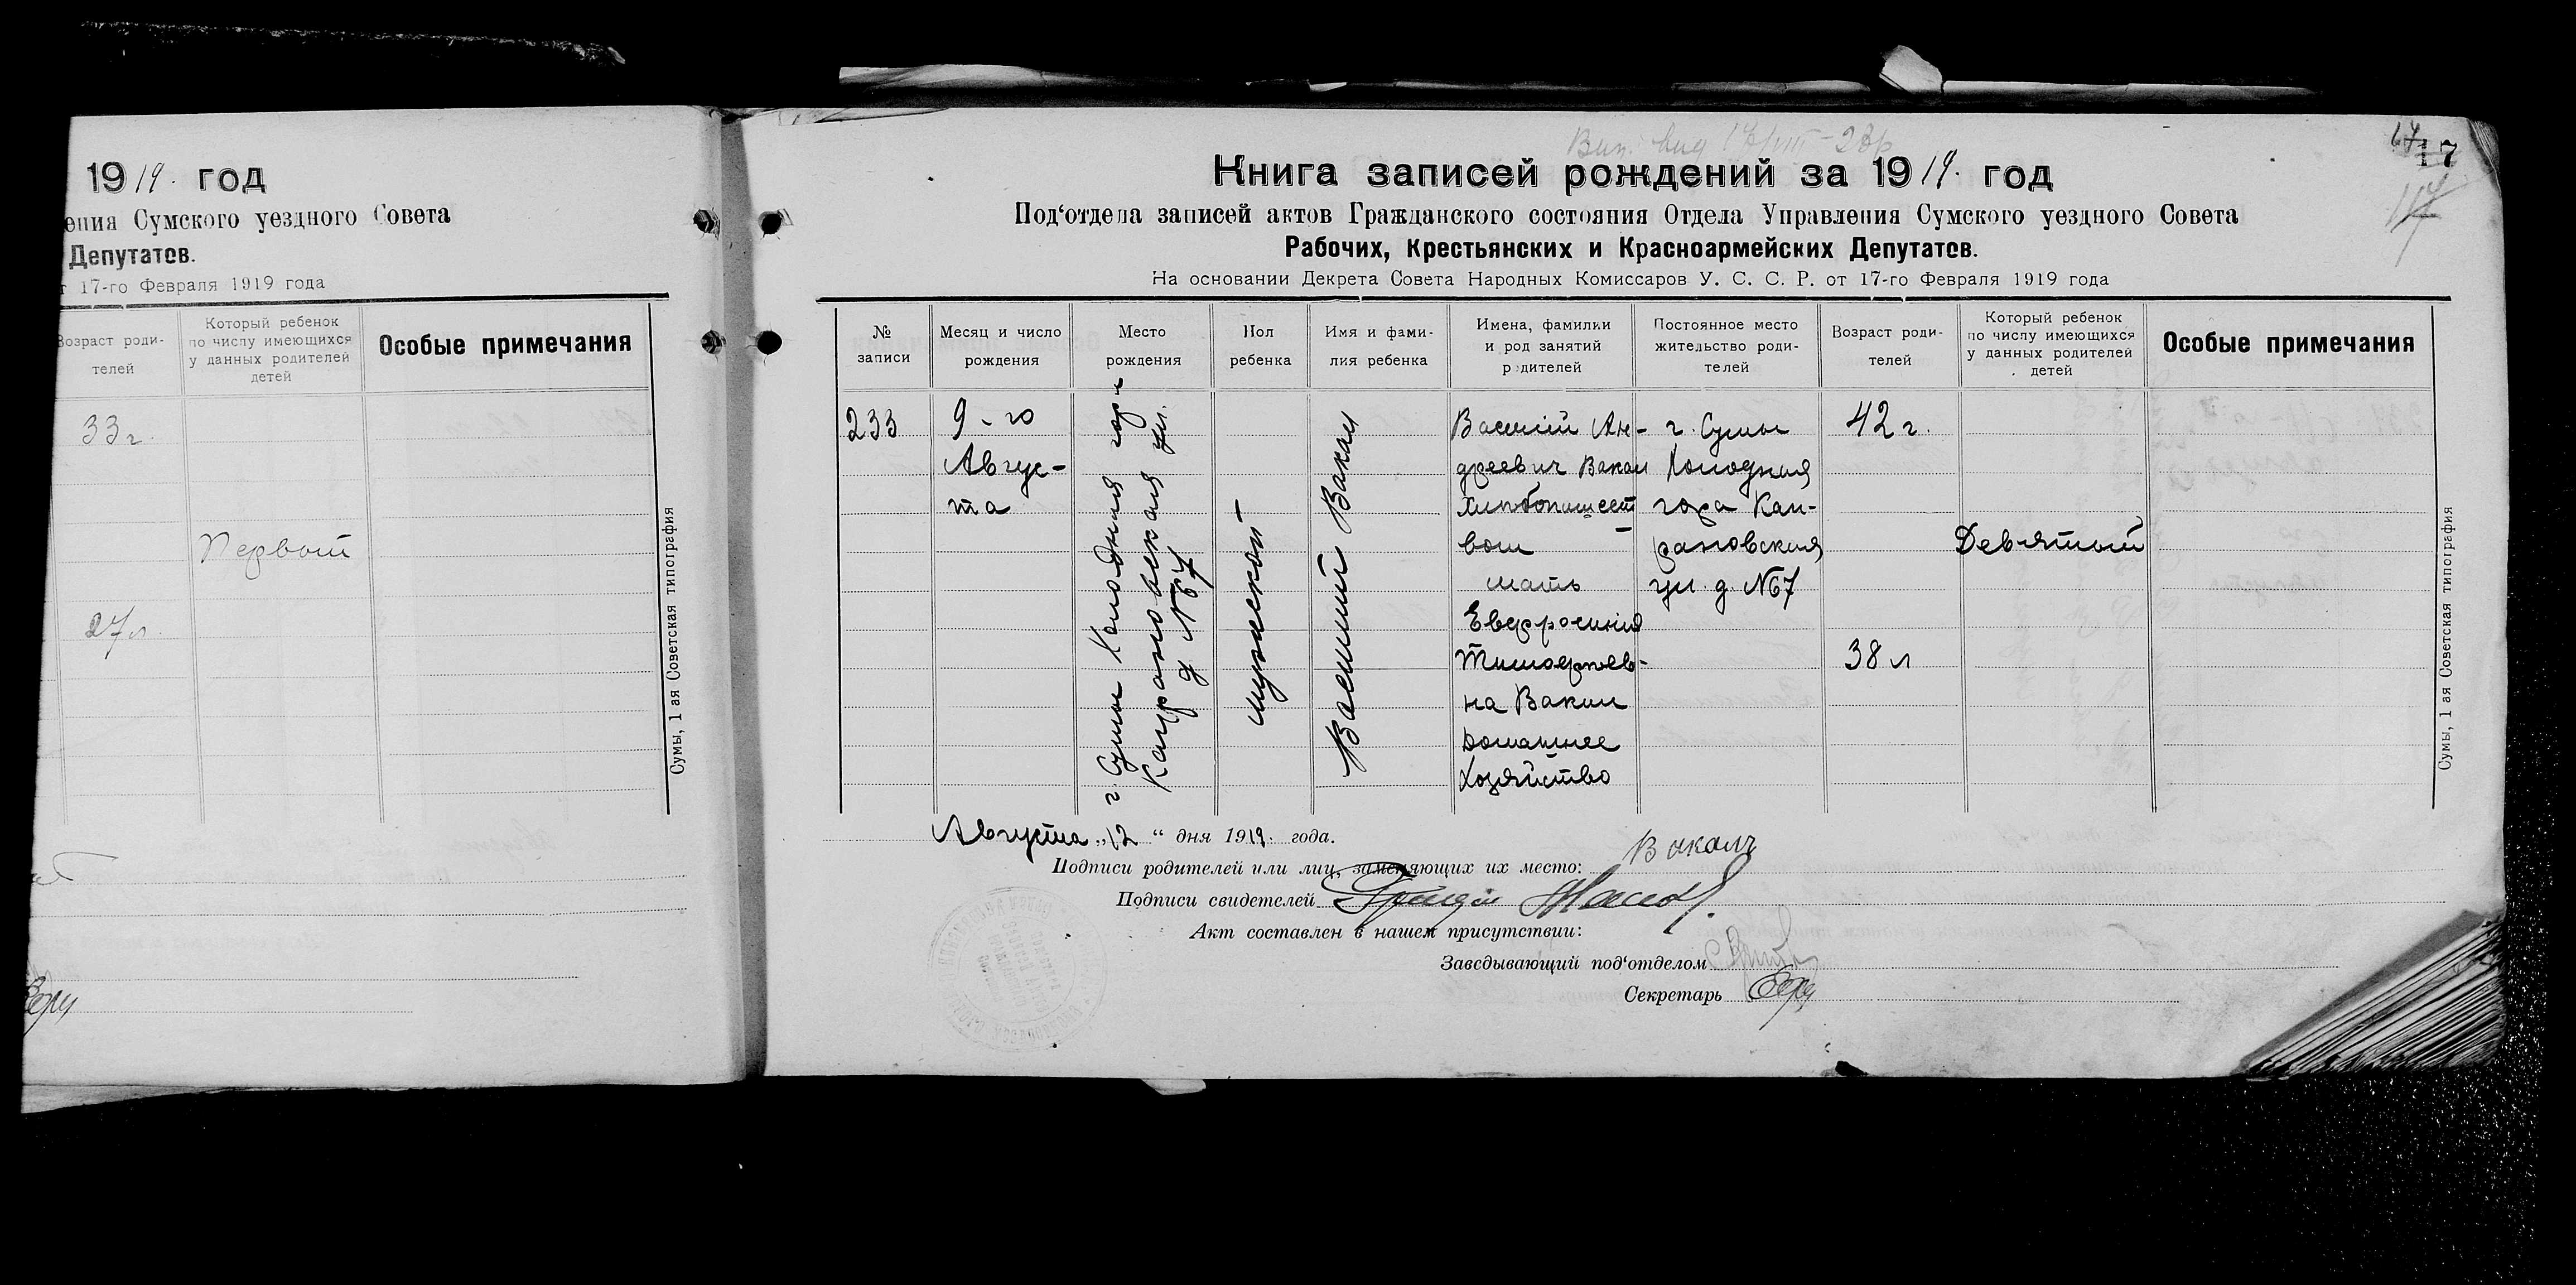 1919. год
ения Сумского уездного Совета
Депутатов.
т 17-го Февраля 1919 года
Возраст роди-
телей
Который ребенок
по числу имеющихся
у данных родителей
детей
Особые примечания
33 г.
Первый
27 л.
Сумы, 1 ая Советская типография
Книга записей рождений за 1919. год
Под‘отдела записей актов Гражданского состояния Отдела Управления Сумского уездного Совета
Рабочих, Крестьянских и Красноармейских Депутатов.
На основании Декрета Совета Народных Комиссаров У. С. С. Р. от 17-го Февраля 1919 года
17
№
записи
Месяц и число
рождения
Место
рождения
Пол
ребенка
Имя и фами-
лия ребенка
Имена, фамилии
и род занятий
родителей
Постоянное место
жительство роди-
телей
Возраст роди-
телей
Который ребенок
по числу имеющихся
у данных родителей
детей
Особые примечания
233
9-го
Авгус-
та
г. Сумы Холодная гора
ул.
д №67
мужеской
Василий Вакал
Василий Ан-
дреевич Вакал
хлебопашест
вом
мать
Евфросиния
Тимофеев-
на Вакал
домашнее
хозяйство
г. Сумы
Холодная
гора
ул. д. №67
42 г.
38 л
Девятый
Сумы, 1 ая Советская типография
Августа „12“ дня 1919. года.
Подписи родителей или лиц, заменяющих их место: Вакалъ
Подписи свидетелей
Акт составлен в нашем присутствии:
Заведывающий под‘отделом
Секретарь